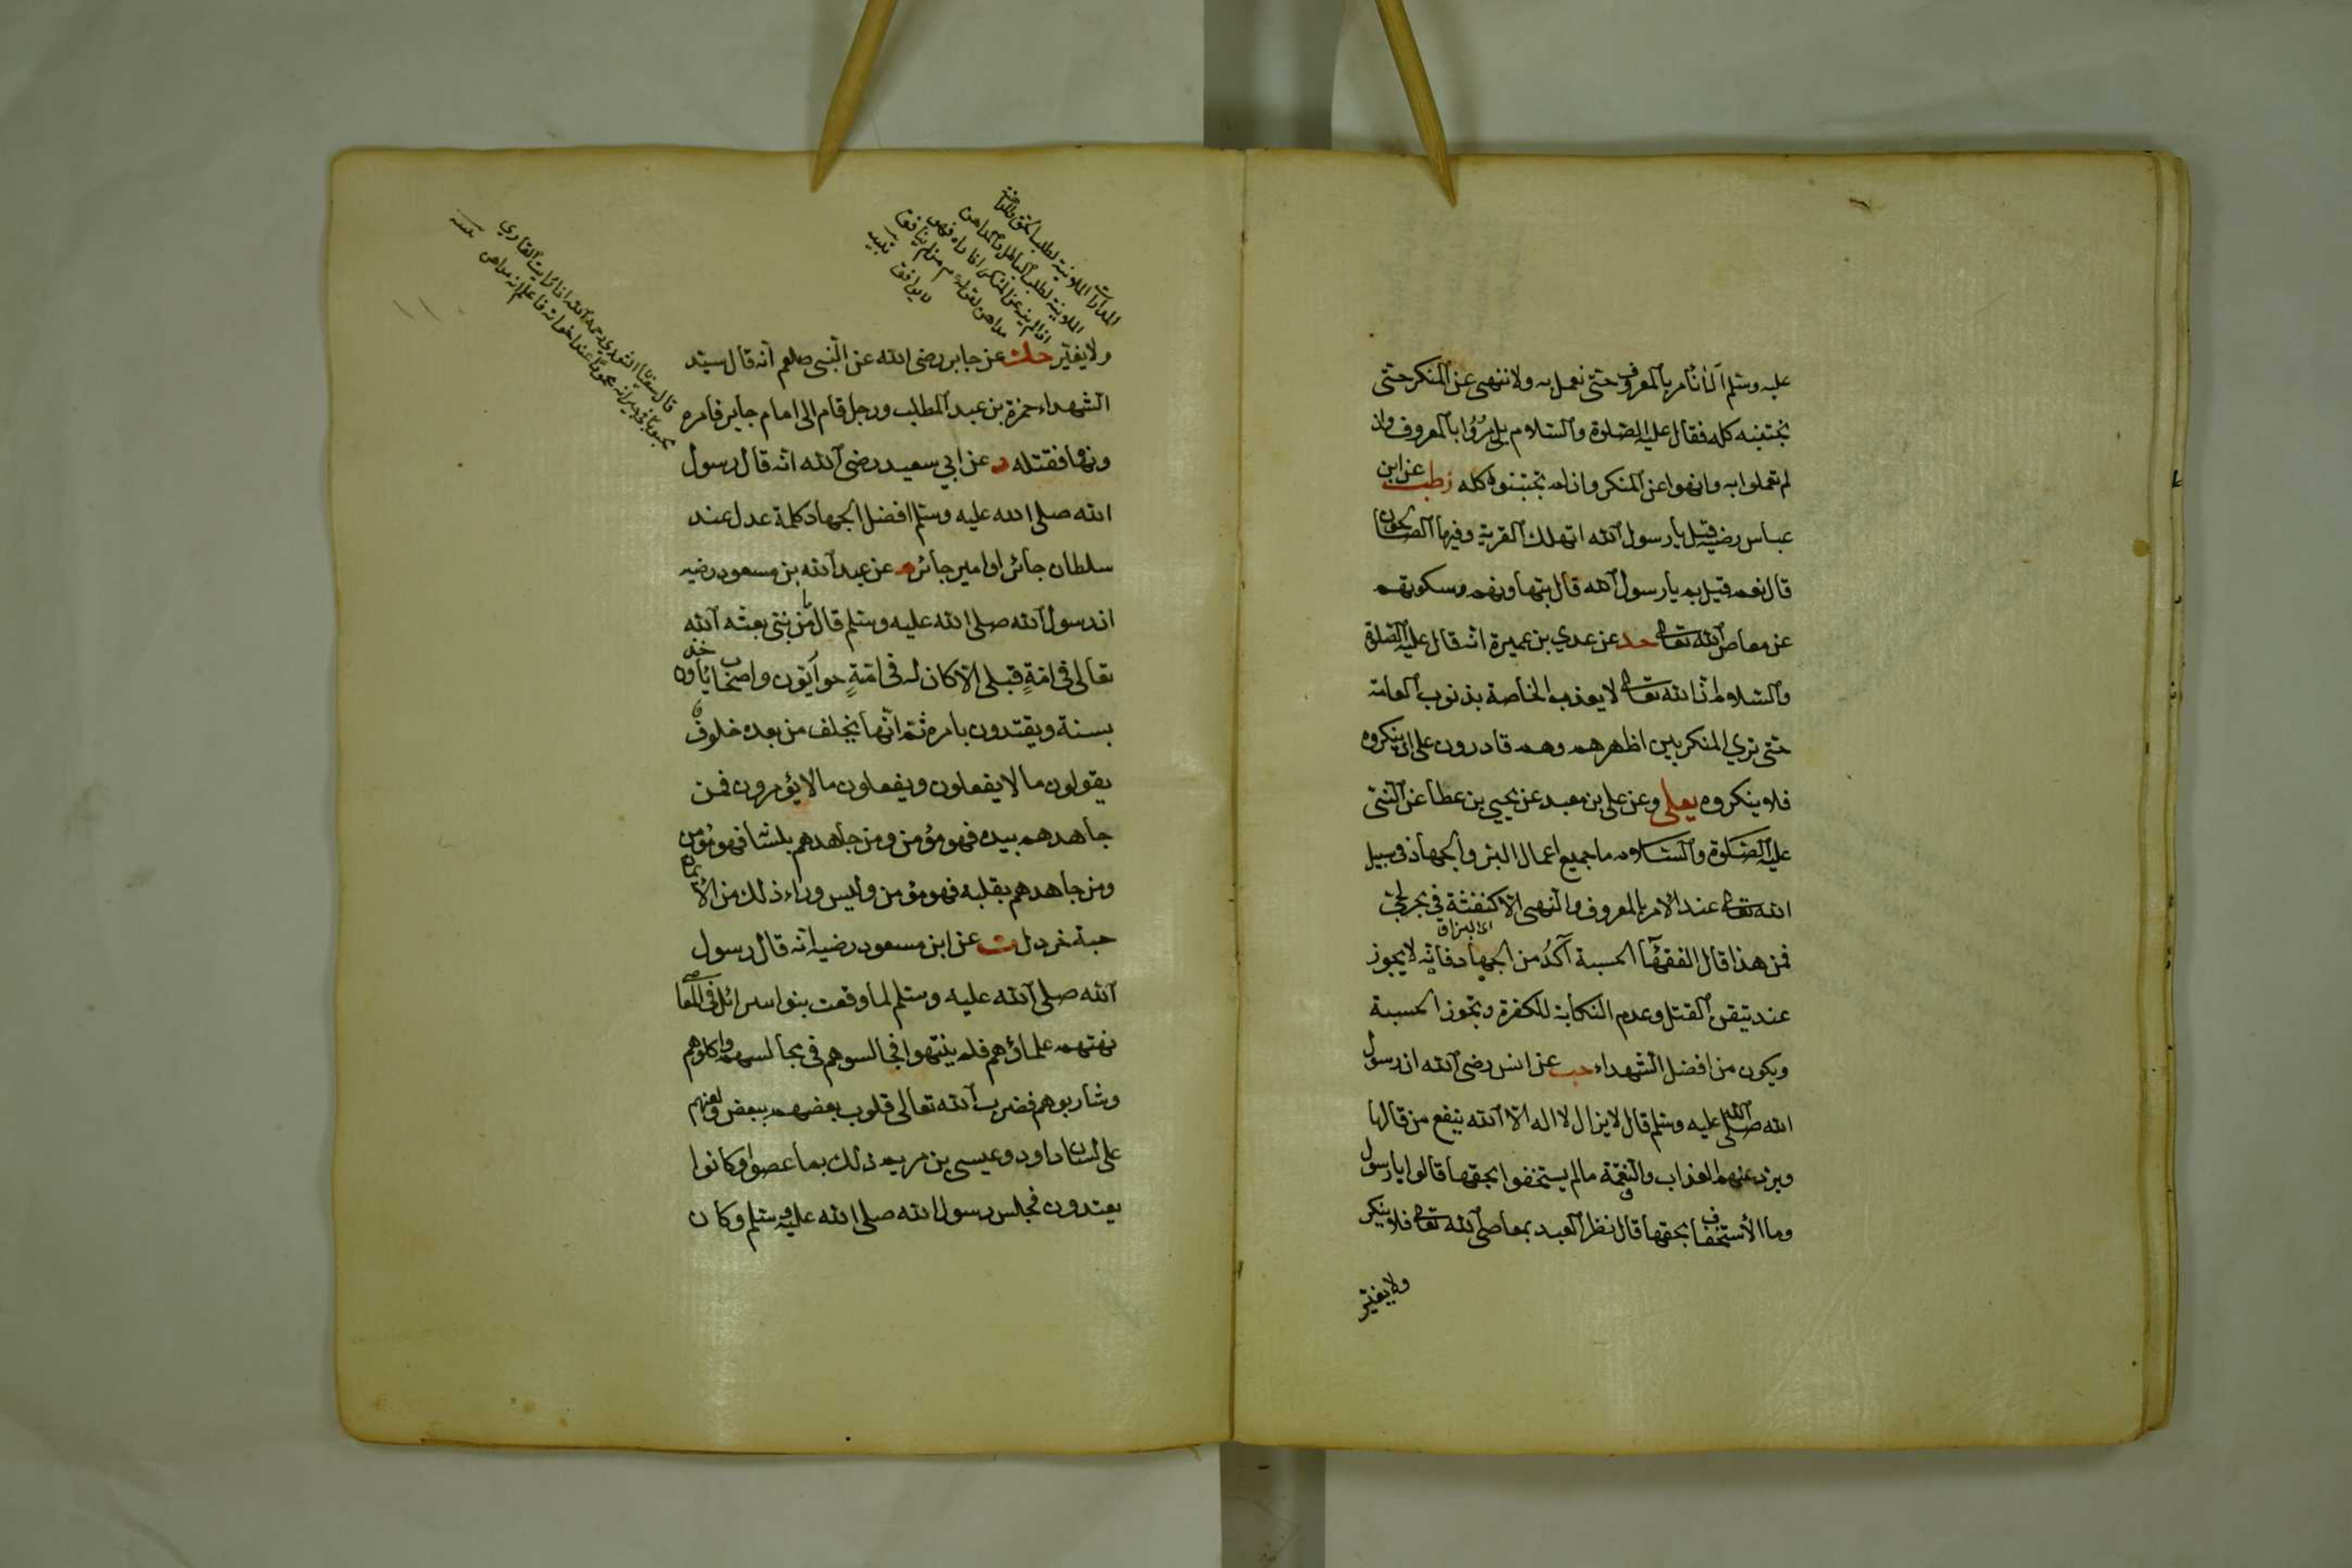 عليه وسلم الا نأمر بالمعروف حتى نعمل به ولا ننهى عن المنكر حتى
نجتنبه كله فقال عليه الصلوة والسلام بل مروا بالمعروف وان
لم تعملوا به وانهوا عن المنكر وان لم تجتنبوه كله زطب عن ابن
عباس رضيه قيل يا رسول الله اتهلك القرية وفيها الصالحون
قال نعم قيل بم يا رسول الله قال بتهاونهم وسكوتهم
عن معاصي الله تعا حد عن عدي بن عميرة انه قال عليه الصلوة
والسلام ان الله تعا لا يعذب الخاصة بذنوب العامة
حتى تري المنكر بين اظهرهم وهم قادرون على ان ينكروه
فلا ينكروه يعلى وعن علي بن معبد عن يحيي بن عطا عن النبي
عليه الصلوة والسلام ما جميع اعمال البر والجهاد في سبيل
الله تعا عند الامر بالمعروف والنهى الا كنفثة في بحر لجي
اى البزاق
فمن هذا قال الفقهآء الحسبة آكد من الجهاد فانه لا يجوز
عند تيقن القتل وعدم النكاية للكفرة وتجوز الحسبة
ويكون من افضل الشهداء حب عن انس رضى الله ان رسول
الله صلى الله عليه وسلم قال لا يزال لا اله الا الله ينفع من قالها
ويرد عنهم العذاب والنقمة ما لم يستخفوا بحقها قالوا يا رسول
وما الاستخفاف بحقها قال نظر العبد بمعاصي الله تعا فلا ينكر
ولا يغير
المدارات الملاينة لطلب الحق والمداهنة
الملاينة لطلب الباطل والمداهن
ولا يغير حك عن جابر رضى الله عن النبى صلعم انه قال سيد
الشهداء حمزة بن عبد المطلب ورجل قام الى امام جاير فامره
ونهاه فقتله د عن ابي سعيد رضى الله انه قال رسول
الله صلى الله عليه وسلم افضل الجهاد كلمة عدل عند
سلطان جائر او امير جائر م عن عبد الله بن مسعود رضيه
ان رسول الله صلى الله عليه وسلم قال ما من نبي بعثه الله
تعالى في امة قبلى الا كان له في امته حواريون واصحاب يأخذون
بسنة ويقتدون بامره ثم انها يخلف من بعده خلوف
يقولون ما لا يفعلون ويفعلون ما لا يؤمرون فمن
جاهدهم بيده فهو مؤمن ومن جاهدهم بلسانه فهو مؤمن
ومن جاهدهم بقلبه فهو مؤمن وليس وراء ذلك من الايمان
حبة خردل ت عن ابن مسعود رضيه انه قال رسول
الله صلى الله عليه وسلم لما وقعت بنوا سرائل في المعاصى
نهتهم علماؤهم فلم ينتهوا فجالسوهم في مجالسهم واكلوهم
وشاربوهم فضرب الله تعالى قلوب بعضهم ببعض ولعنهم
على لسان داود وعيسى بن مريم ذلك بما عصوا وكانوا
يعتدون فجلس رسول الله صلى الله عليه وسلم وكان